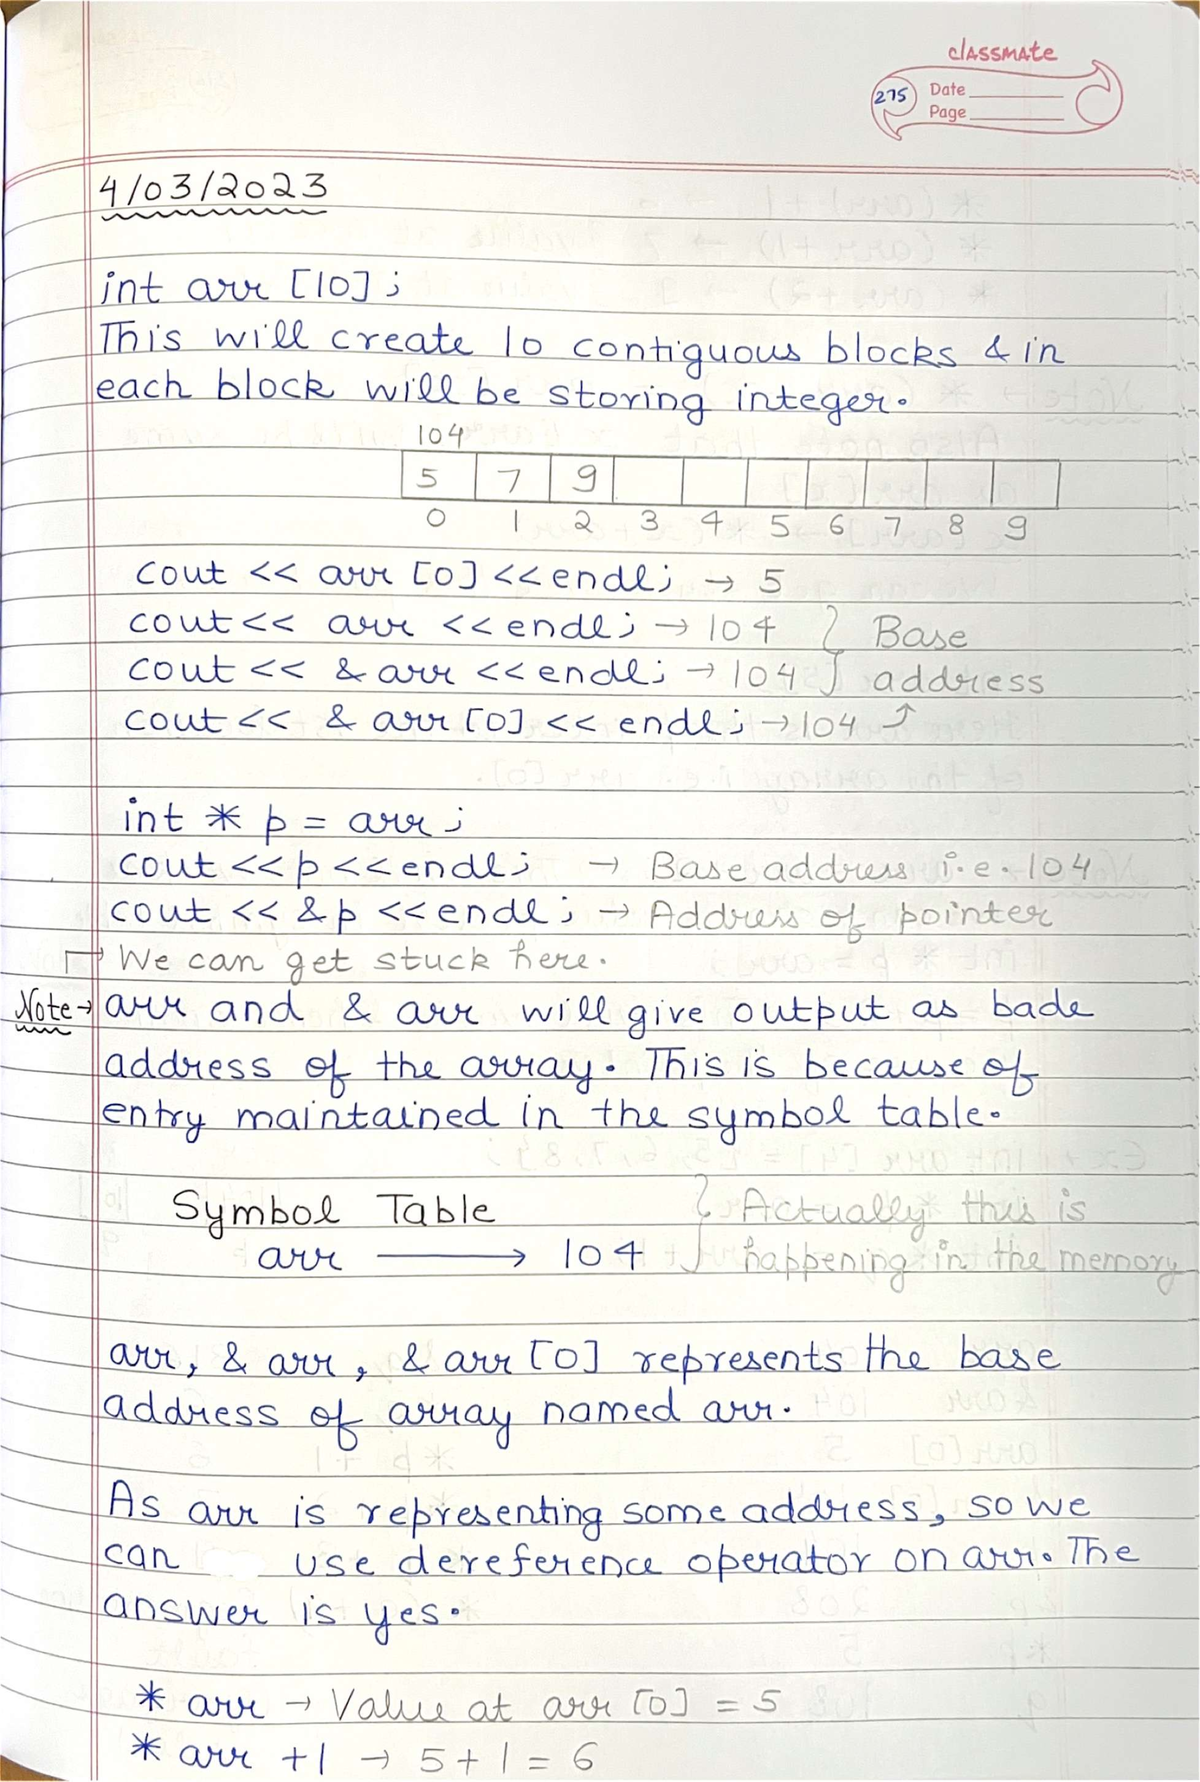 classmate
275
Date
Page
4/03/2023
int arr [10];
This will create 10 contiguous blocks & in
each block will be storing integer.
104
5 7 9
0 1 2 3 4 5 6 7 8 9
cout << arr [0] << endl; → 5
cout << arr << endl; → 104 } Base
cout << & arr << endl; → 104 } address
cout << & arr [0] << endl; → 104 ↑
int * p = arr;
cout << p << endl; → Base address i.e. 104
cout << &p << endl; → Address of pointer
→ We can get stuck here.
Note → arr and & arr will give output as bade
address of the array. This is because of
entry maintained in the symbol table.
Symbol Table } Actually this is
arr → 104 } happening in the memory
arr, & arr, & arr [0] represents the base
address of array named arr.
As arr is representing some address, so we
can use dereference operator on arr. The
answer is yes.
* arr → Value at arr [0] = 5
* arr +1 → 5 + 1 = 6